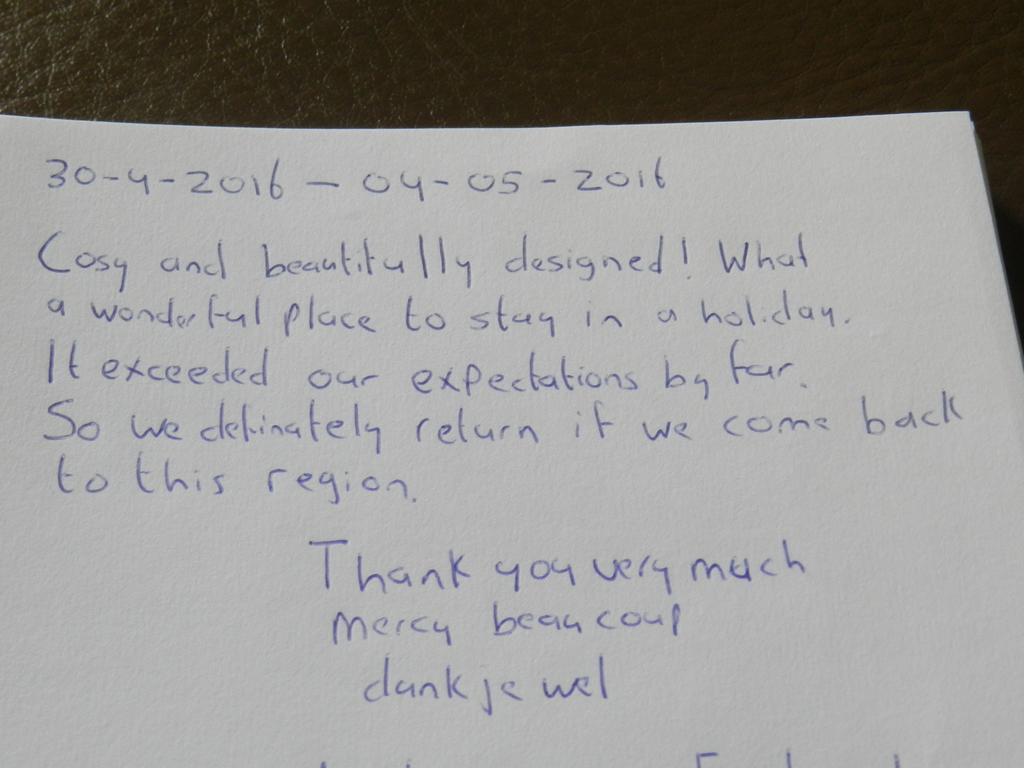 30-4-2016 - 04-05-2016
Cosy and beautifully designed! What
a wonderful place to stay in a holiday.
It exceeded our expectations by far.
So we definately return if we come back
to this region.
Thank you very much
mercy beaucoup
dank je wel